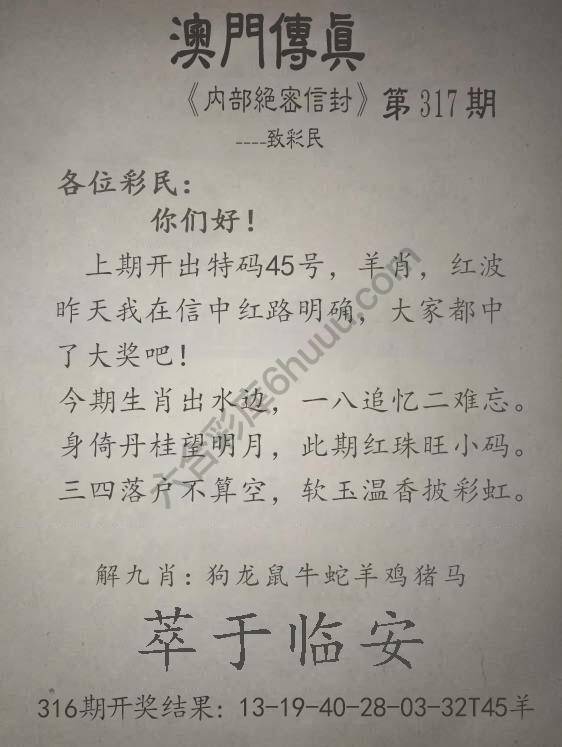 澳門傳眞
《内部絕密信封》第317期
----致彩民
各位彩民：
你们好！
上期开出特码45号，羊肖，红波
昨天我在信中红路明确，大家都中
了大奖吧！
今期生肖出水边，一八追忆二难忘。
身倚丹桂望明月，此期红珠旺小码。
三四落户不算空，软玉温香披彩虹。
解九肖：狗龙鼠牛蛇羊鸡猪马
萃于临安
316期开奖结果：13-19-40-28-03-32T45羊
六合彩库6huuu.com